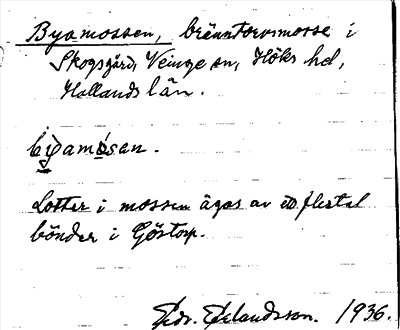 Byamossen, bränntorvsmosse i
Skogsgård, Veinge sn, Höks hd,
Hallands län.
býamòsan.
Lotter i mossen ägas av ett flertal
bönder i Göstorp.
1936.